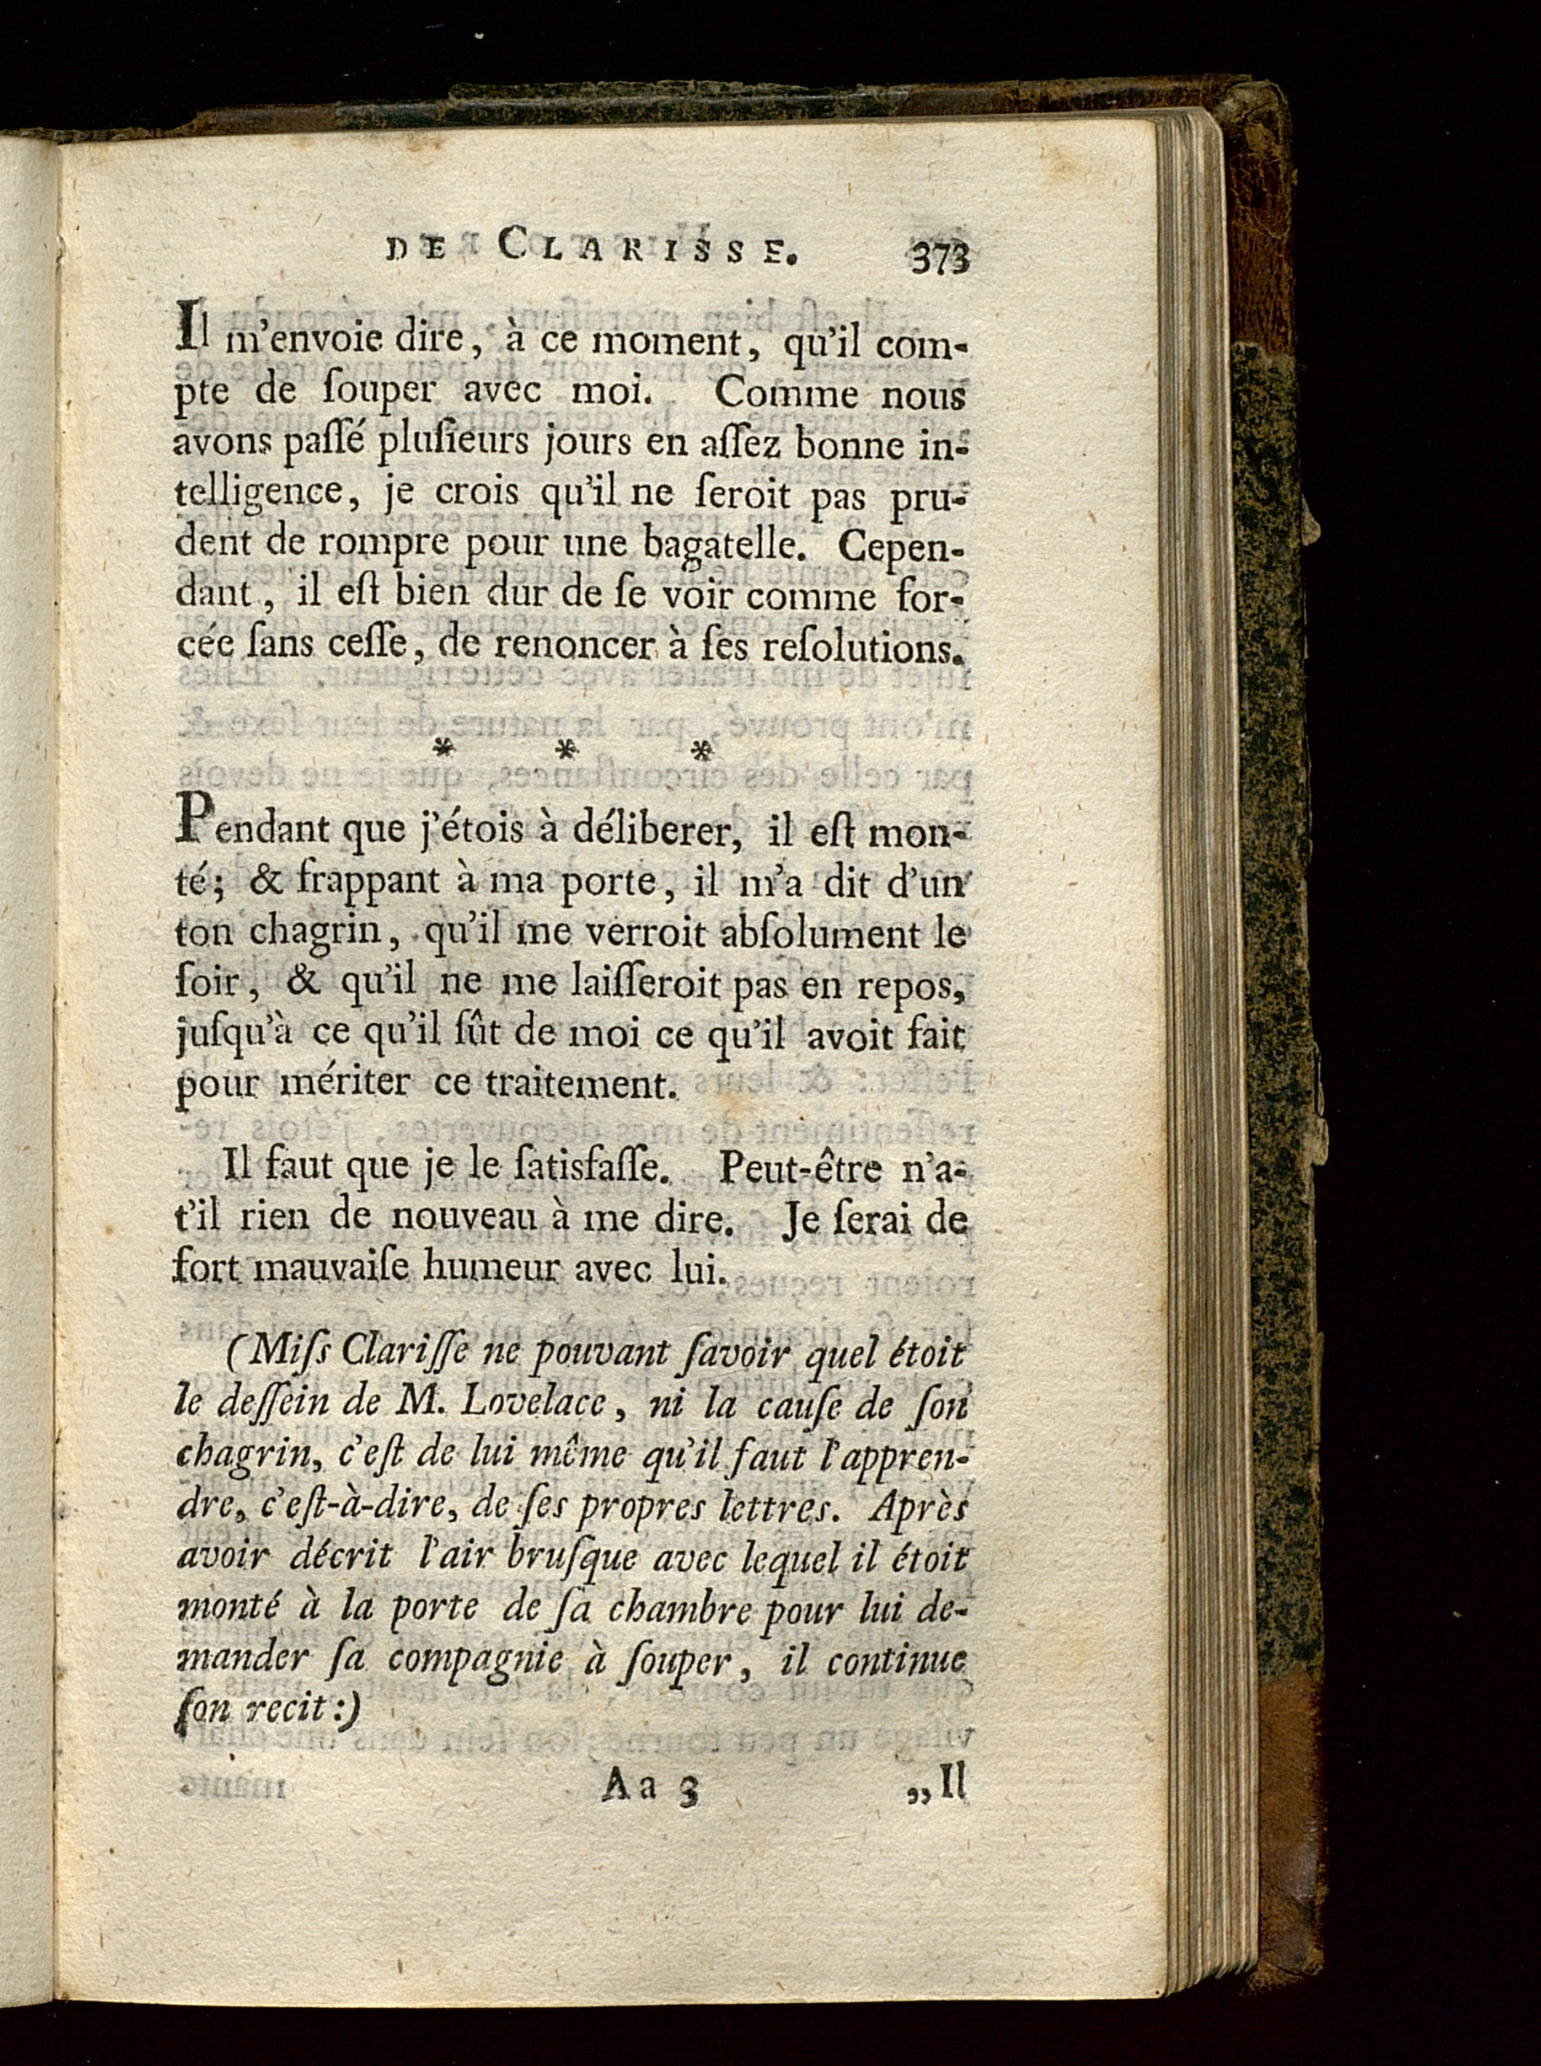 DE CLARISSE. 373
Il m'envoie dire, à ce moment, qu'il com-
pte de ſouper avec moi. Comme nous
avons paſſé pluſieurs jours en aſſez bonne in-
telligence, je crois qu'il ne ſeroit pas pru-
dent de rompre pour une bagatelle. Cepen-
dant, il eſt bien dur de ſe voir comme for-
cée ſans ceſſe, de renoncer à ſes reſolutions.
* * *
Pendant que j'étois à déliberer, il eſt mon-
té; & frappant à ma porte, il m'a dit d'un
ton chagrin, qu'il me verroit abſolument le
ſoir, & qu'il ne me laiſſeroit pas en repos,
juſqu'à ce qu'il ſût de moi ce qu'il avoit fait
pour mériter ce traitement.
Il faut que je le ſatisfaſſe. Peut-être n'a-
t'il rien de nouveau à me dire. Je ſerai de
fort mauvaiſe humeur avec lui.
(Miſs Clariſſe ne pouvant ſavoir quel étoit
le deſſein de M. Lovelace, ni la cauſe de ſon
chagrin, c'eſt de lui même qu'il faut l'appren-
dre, c'eſt-à-dire, de ſes propres lettres. Après
avoir décrit l'air bruſque avec lequel il étoit
monté à la porte de ſa chambre pour lui de-
mander ſa compagnie à ſouper, il continue
ſon recit:)
Aa 3 „Il